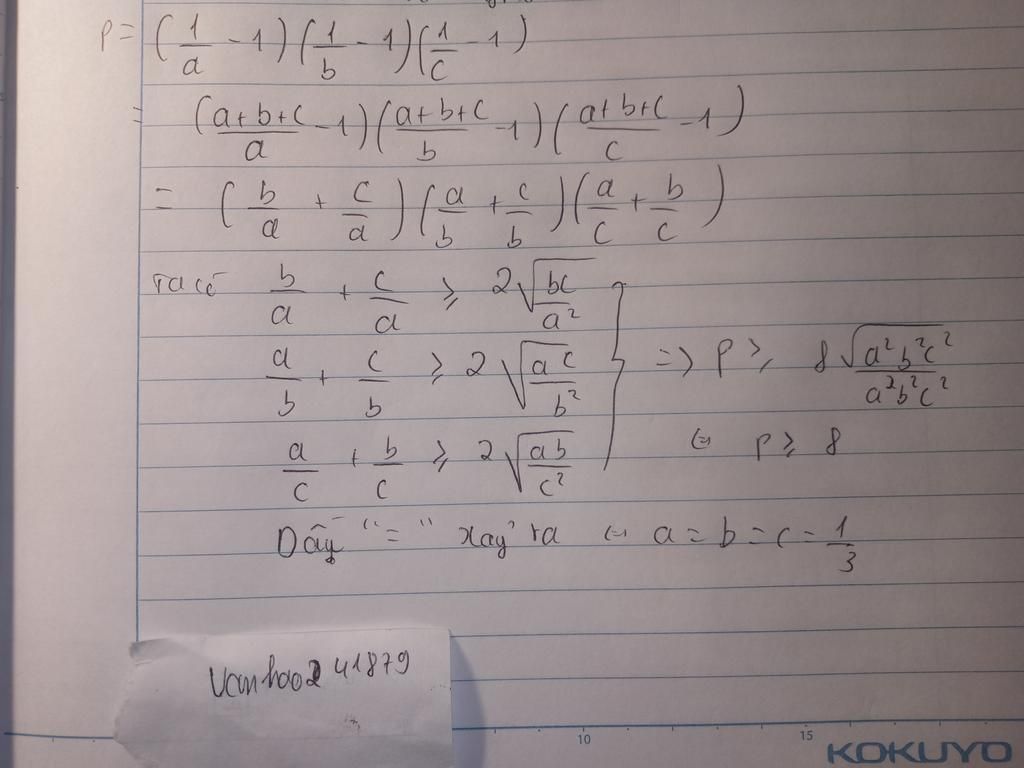 P = (1/a - 1)(1/b - 1)(1/c - 1)
= ((a+b+c)/a - 1)((a+b+c)/b - 1)((a+b+c)/c - 1)
= (b/a + c/a)(a/b + c/b)(a/c + b/c)
Ta có b/a + c/a ≥ 2√(bc/a²)
a/b + c/b ≥ 2√(ac/b²) => P ≥ 8√(a²b²c²/a²b²c²)
a/c + b/c ≥ 2√(ab/c²) ⇔ P ≥ 8
Dấu "=" xảy ra ⇔ a = b = c = 1/3
Vanhao241879
10 15
KOKUYO